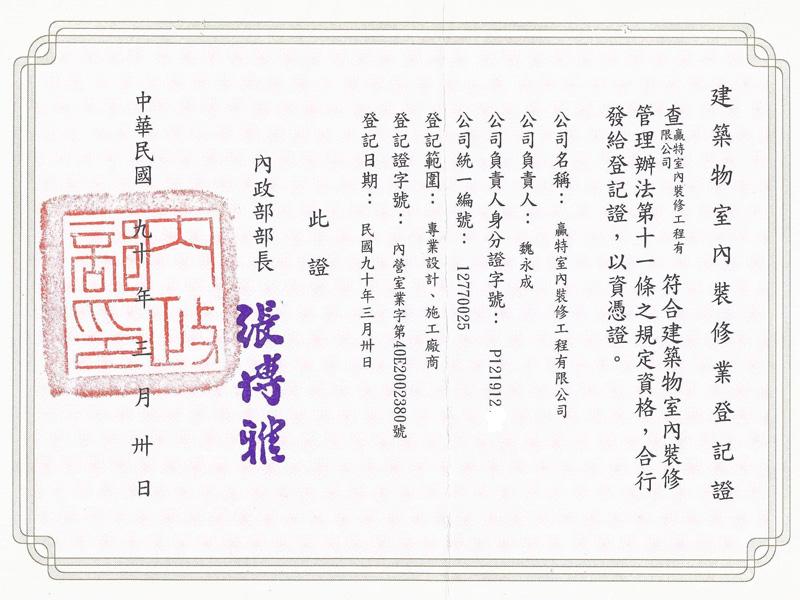 建築物室內裝修業登記證
查贏特室內裝修工程有限公司符合建築物室內裝修
管理辦法第十一條之規定資格，合行
發給登記證，以資憑證。
公司名稱：贏特室內裝修工程有限公司
公司負責人：魏永成
公司負責人身分證字號：P121912
公司統一編號：12770025
登記範圍：專業設計、施工廠商
登記證字號：內營室業字第40E2002380號
登記日期：民國九十年三月卅日
此證
內政部部長 張博雅
中華民國九十年三月卅日
內政部印